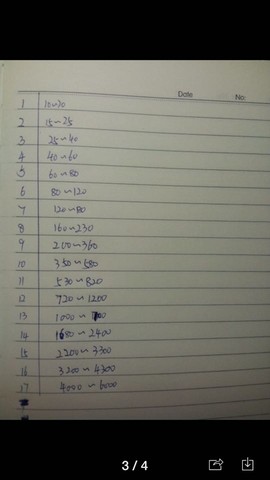 Date
No:
1 10~20
2 15~25
3 25~40
4 40~60
5 60~80
6 80~120
7 120~80
8 160~230
9 200~360
10 350~580
11 530~820
12 720~1200
13 1000~700
14 1680~2400
15 2200~3300
16 3200~4300
17 4000~6000
3 / 4